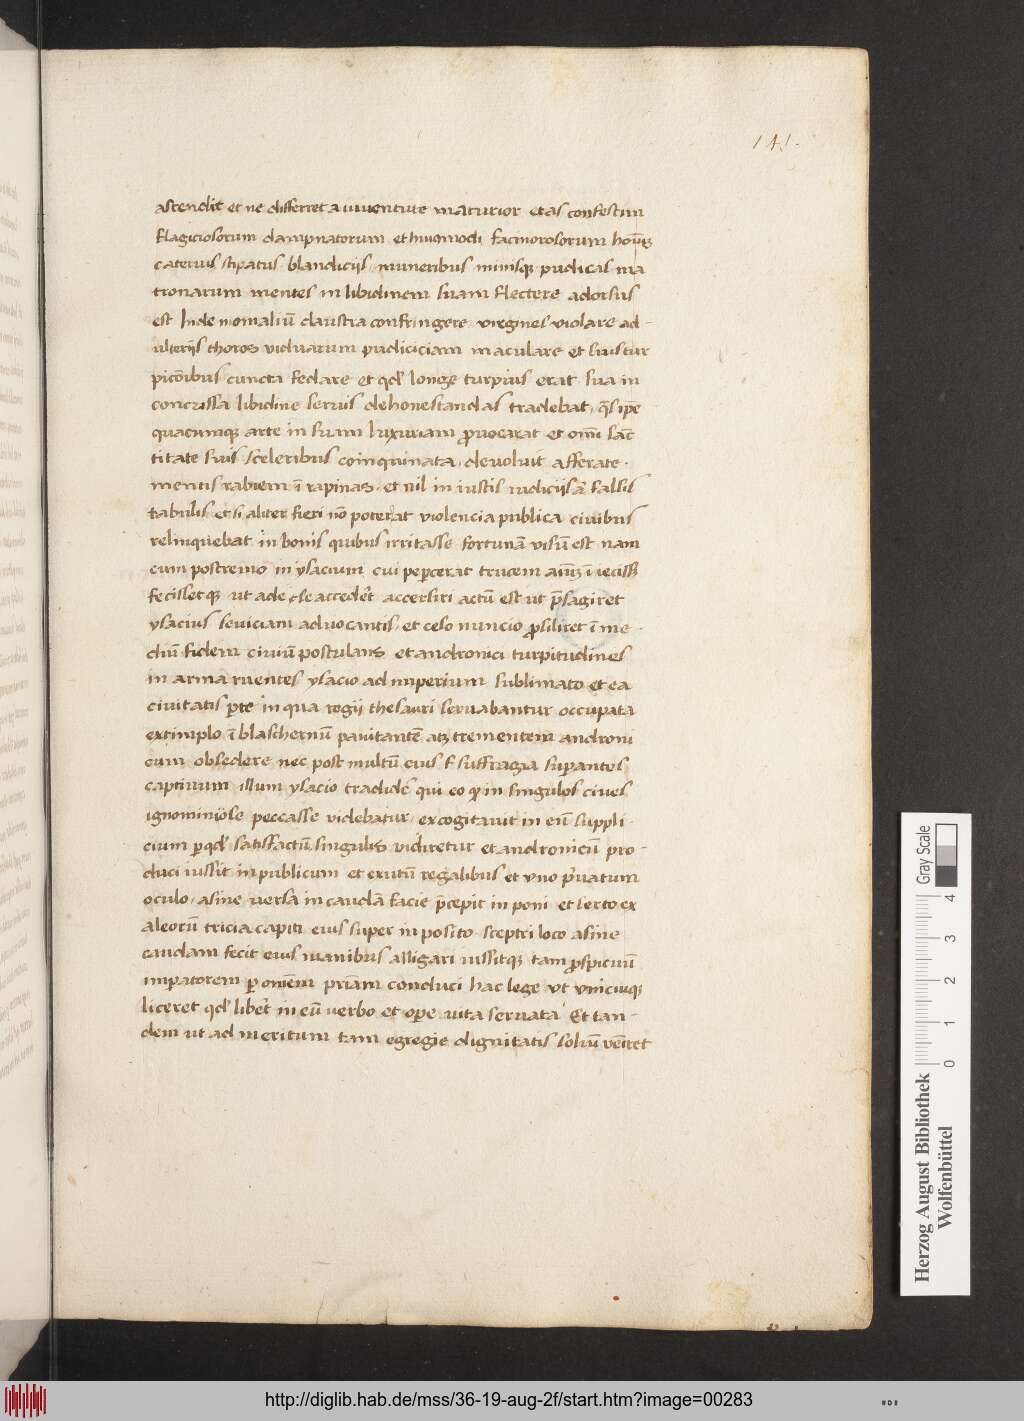 141.
ascendit et ne differret a iuventute maturior etas confestim
flagiciosorum dampnatorum et huiōmodi facinorosorum hoīuꝫ
catervis stipatus blandiciis muneribus minisqꝫ pudicas ma
tronarum mentes in libidinem suam flectere adorsus
est Inde monialiū claustra confringere virgines violare ad-
ulteriis thoros viduarum pudiciciam maculare et huius tur
picōibus cuncta fedare et qd' longe turpius erat sua in
concussa libidine servis dehonestandas tradebat, q̄s ip̄e
quacumqꝫ arte in suam luxuriam p̄vocarat et om̄i sāc
titate suis sceleribus coinquinata, devoluit afferate-
mentis rabiem ī rapinas, et nil in iustis iudiciis ā falsis
tabulis et si aliter fieri nō poterat violencia publica civibus
relinquebat in bonis quibus irritasse fortunā visū est nam
cum postremo in ysacium cui pepercerat trucem aīuꝫ ī iecissꝫ
fecissetqꝫ ut ad se accedēt accersiri actū est ut p̄sagiret
ysacius seviciam advocantis, et ceso nuncio p̄siliret ī me-
diū fidem civiū postulans et andronici turpitudines
in arma ruentes ysacio ad imperium sublimato et ea
civitatis p̄te in qua regii thesauri servabantur occupata
extimplo ī blaschernū pavitantē atqꝫ trementem androni
cum obsedere nec post multū eius suffragia sup̄antes
captivum illum ysacio tradidē qui eo qꝫ in singulos cives
ignominiose peccasse videbatur, excogitavit in eū suppli-
cium p̄ qd' satisfactū singulis videretur et andronicū pro-
duci iussit in publicum et exutū regalibus et uno p̄vatum
oculo, asine versā in caudā facie p̄cepit in poni et serto ex
aleorū tricia capiti eius super in posito sceptri loco asine
caudam fecit eius manibus alligari iussitqꝫ tam p̄spicuū
imp̄atorem p̄ om̄em p̄riam conduci hac lege ut unicuiqꝫ
liceret qd' libet in eū verbo et op̄e vita servata Et tan-
dem ut ad meritum tam egregie dignitatis soliū vēiret
Herzog August Bibliothek
Wolfenbüttel
0 1 2 3 4
Gray Scale
http://diglib.hab.de/mss/36-19-aug-2f/start.htm?image=00283